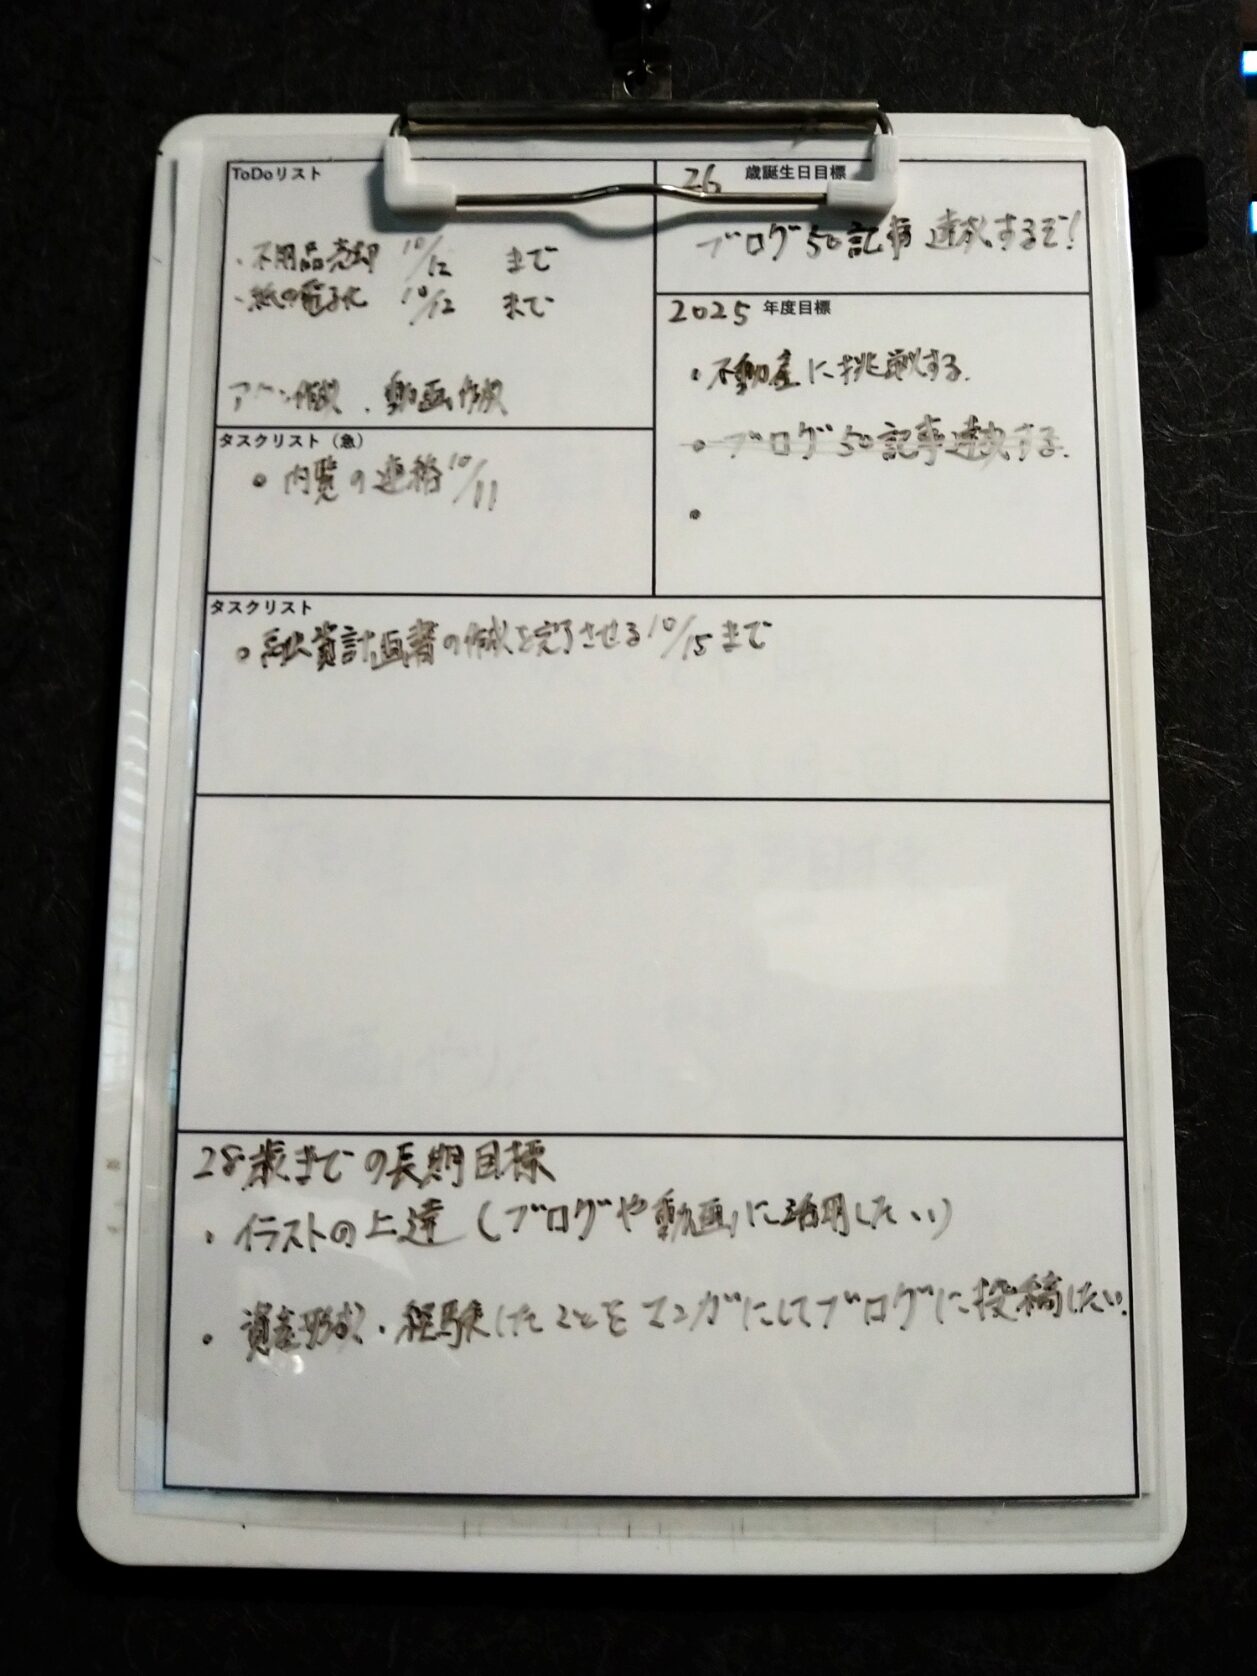 ToDoリスト
・不用品売却 10/12 まで
・紙の電子化 10/12 まで
作成、動画作成
タスクリスト（急）
・内覧の連絡 10/11
26 歳誕生日目標
ブログ50記事達成するぞ!
2025 年度目標
・不動産に挑戦する.
・ブログ50記事達成する.
・
タスクリスト
・融資計画書の作成を完了させる 10/15 まで
28歳までの長期目標
・イラストの上達 (ブログや動画に活用したい)
・資産形成・経験したことをマンガにしてブログに投稿したい.